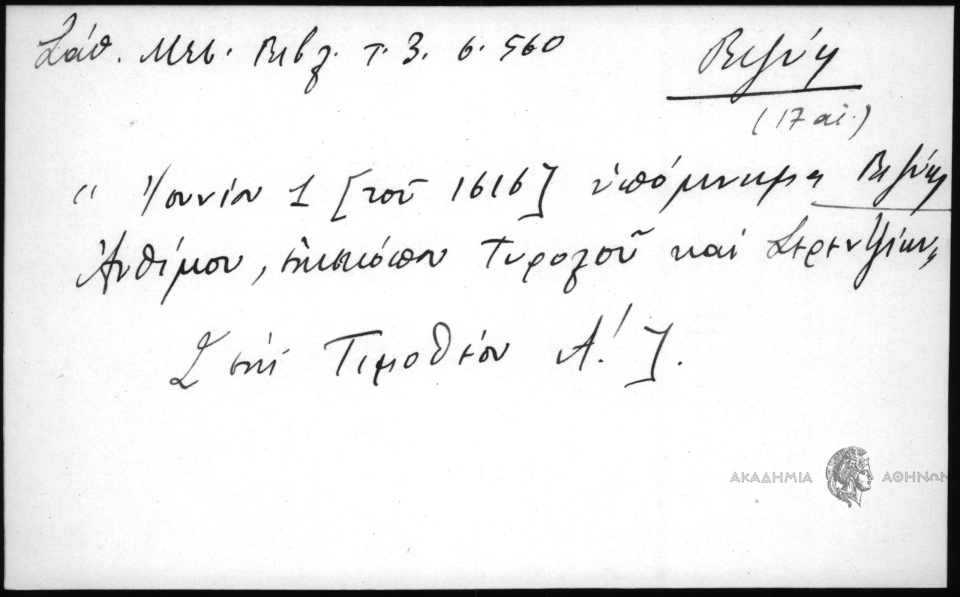 Σάθ. Μεσ. Βιβλ. τ. 3. σ. 560
Βιζύη
(17 αἰ.)
“ Ἰουνίου 1 [τοῦ 1616] ὑπόμνημα Βιζύης
Ἀνθίμου, ἐπισκόπου Τυρολόῦ καὶ Σερεντζίου„
[ἐπὶ Τιμοθέου Α΄.].
ΑΚΑΔΗΜΙΑ ΑΘΗΝΩΝ